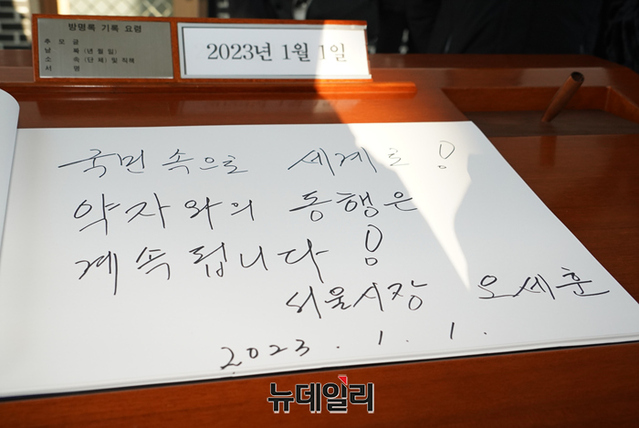 방명록 기록 요령
추 모 글
날 짜 (년 월 일)
소 속 (단 체) 및 직책
서 명
2023년 1월 1일
국민 속으로 세계로!
약자와의 동행은
계속됩니다!
서울시장 오세훈
2023. 1. 1.
뉴데일리